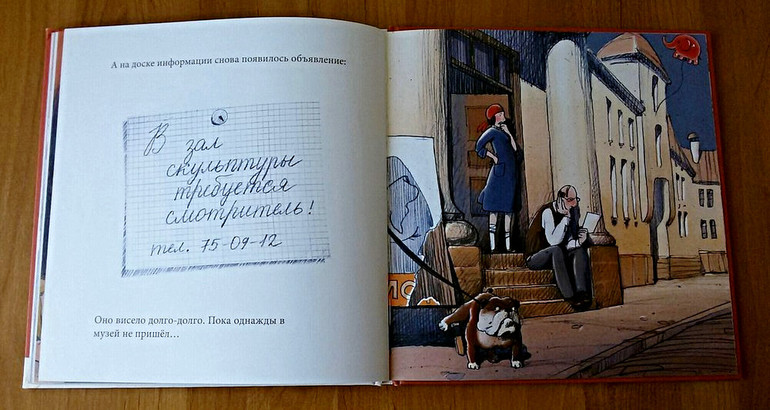 А на доске информации снова появилось объявление:
В зал
скульптуры
требуется
смотритель!
тел. 75-09-12
Оно висело долго-долго. Пока однажды в
музей не пришёл...